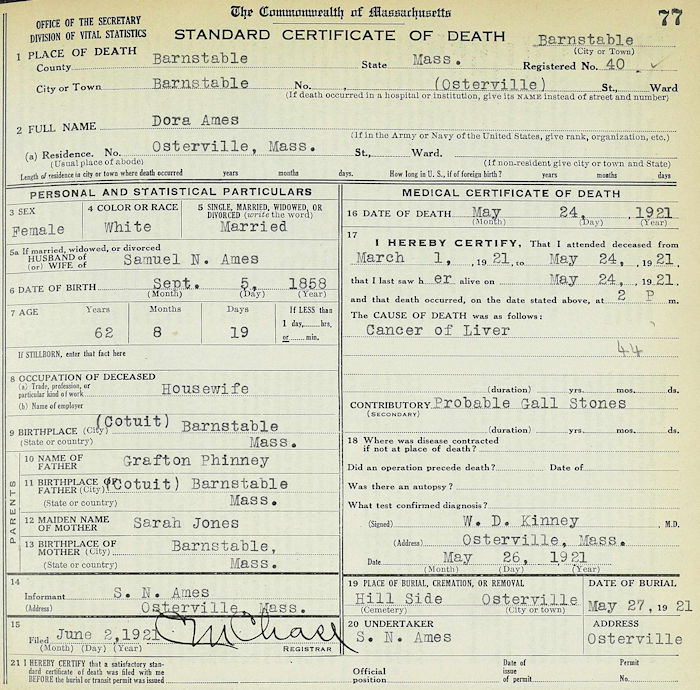 The Commonwealth of Massachusetts
77
OFFICE OF THE SECRETARY
DIVISION OF VITAL STATISTICS
STANDARD CERTIFICATE OF DEATH
Barnstable
(City or Town)
1 PLACE OF DEATH
County Barnstable State Mass. Registered No. 40
City or Town Barnstable No. , (Osterville) St., Ward
(If death occurred in a hospital or institution, give its NAME instead of street and number)
2 FULL NAME Dora Ames
(If in the Army or Navy of the United States, give rank, organization, etc.)
(a) Residence. No. Osterville, Mass. St., Ward.
(Usual place of abode) (If non-resident give city or town and State)
Length of residence in city or town where death occurred years months days. How long in U. S., if of foreign birth? years months days
PERSONAL AND STATISTICAL PARTICULARS
3 SEX
Female
4 COLOR OR RACE
White
5 SINGLE, MARRIED, WIDOWED, OR
DIVORCED (write the word)
Married
5a If married, widowed, or divorced
HUSBAND of
(or) WIFE of Samuel N. Ames
6 DATE OF BIRTH Sept. 5, 1858
(Month) (Day) (Year)
7 AGE
Years Months Days
62 8 19
If LESS than
1 day,......hrs.
or......min.
If STILLBORN, enter that fact here
8 OCCUPATION OF DECEASED
(a) Trade, profession, or
particular kind of work Housewife
(b) Name of employer
9 BIRTHPLACE (City) (Cotuit) Barnstable
(State or country) Mass.
PARENTS
10 NAME OF
FATHER Grafton Phinney
11 BIRTHPLACE OF
FATHER (City) (Cotuit) Barnstable
(State or country) Mass.
12 MAIDEN NAME
OF MOTHER Sarah Jones
13 BIRTHPLACE OF
MOTHER (City) Barnstable,
(State or country) Mass.
14
Informant S. N. Ames
(Address) Osterville, Mass.
15
Filed June 2, 1921 C M Chase
(Month) (Day) (Year) REGISTRAR
MEDICAL CERTIFICATE OF DEATH
16 DATE OF DEATH May 24, , 1921
(Month) (Day) (Year)
17
I HEREBY CERTIFY, That I attended deceased from
March 1, , 1921, to May 24, , 1921,
that I last saw h er alive on May 24, , 1921,
and that death occurred, on the date stated above, at 2 P m.
The CAUSE OF DEATH was as follows:
Cancer of Liver
44
(duration) yrs. mos. ds.
CONTRIBUTORY Probable Gall Stones
(SECONDARY)
(duration) yrs. mos. ds.
18 Where was disease contracted
if not at place of death?
Did an operation precede death? Date of
Was there an autopsy?
What test confirmed diagnosis?
(Signed) W. D. Kinney , M.D.
(Address) Osterville, Mass.
Date May 26, 1921
(Month) (Day) (Year)
19 PLACE OF BURIAL, CREMATION, OR REMOVAL
Hill Side Osterville
(Cemetery) (City or town)
DATE OF BURIAL
May 27, 1921
20 UNDERTAKER
S. N. Ames
ADDRESS
Osterville
21 I HEREBY CERTIFY that a satisfactory stan-
dard certificate of death was filed with me
BEFORE the burial or transit permit was issued
Official
position
Date of
issue
of permit
Permit
No.